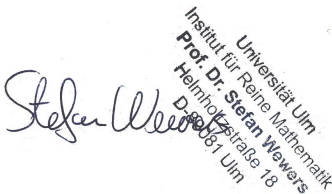 Stefan Wewers
Universität Ulm
Institut für Reine Mathematik
Prof. Dr. Stefan Wewers
Helmholtzstraße 18
Ulm